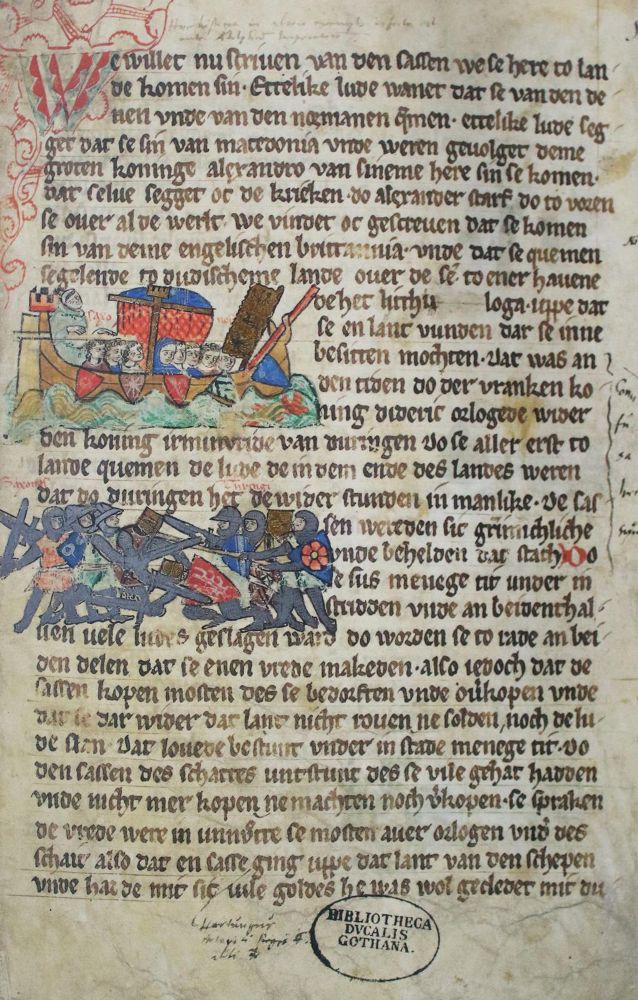 e willet nu scriven van den sassen we se here to lan
de komen sin · Ettelike lude wanet dat se van den de
nen vnde van den normanen qmen · ettelike lude seg
get dat se sin van macedonia vnde weren gevolget deme
groten koninge alexandro van sineme here sin se komen ·
dat selve segget oc de krieken · do alexander starf do to voren
se over al de werlt · we vindet oc gescreven dat se komen
sin van deme engelischen brittannia · vnde dat se quemen
segelende to dudischeme lande over de se to ener havene
de het
loga · uppe dat
se en lant vunden dar se inne
besitten mochten · Dat was an
den tiden do der vranken ko
ning dideric orlogede wider
den koning irminvride van duringen Do se aller erst to
lande quemen de lude de in dem ende des landes weren
dat do duringen het de wider stunden in manlike · De sas
sen wereden sic grimichliche
vnde behelden dat stath Do
se sus menege tit under in
stridden vnde an beidenthal
ven vele ludes geslagen ward do worden se to rade an bei
den delen dat se enen vrede makeden · also iedoch dat de
sassen kopen mosten des se bedorften vnde vurkopen vnde
dat se dar wider dat lant nicht roven ne solden, noch de lu
de slan · Dat lovede bestunt under in stade menege tit · Do
den sassen des schattes untstunt des se vile gehat hadden
vnde nicht mer kopen ne machten noch vkopen · se spraken
de vrede were in se mosten aver orlogen vnd des
also dat en sasse ging uppe dat lant van den schepen
vnde hadde mit sic vile goldes he was wol gecledet mit du
BIBLIOTHECA
DVCALIS
GOTHANA.